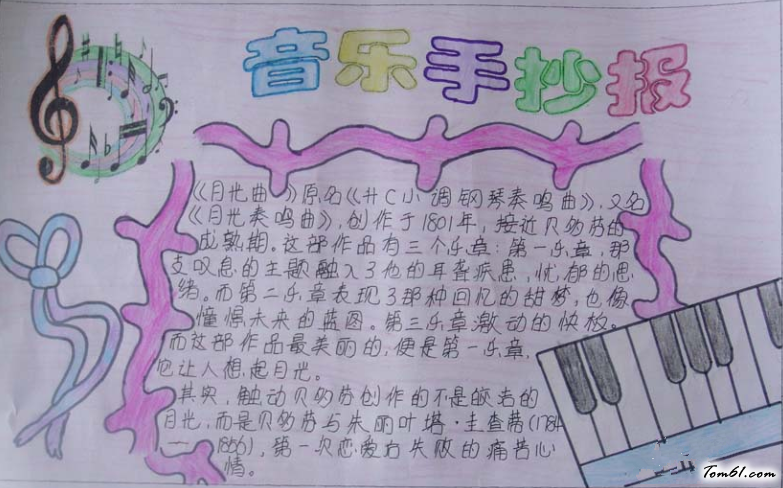 音乐手抄报
《月光曲》原名《升C小调钢琴奏鸣曲》，又名
《月光奏鸣曲》，创作于1801年，接近贝多芬的
成熟期。这部作品有三个乐章：第一乐章，那
支叹息的主题融入了他的耳聋疾患，忧郁的思
绪。而第二乐章表现了那种回忆的甜梦，也像
憧憬未来的蓝图。第三乐章激动的快板。
而这部作品最美丽的，便是第一乐章，
它让人想起月光。
其实，触动贝多芬创作的不是皎洁的
月光，而是贝多芬与朱丽叶塔·圭查蒂(1784
一1856)，第一次恋爱后失败的痛苦心
情。
Tom61.com